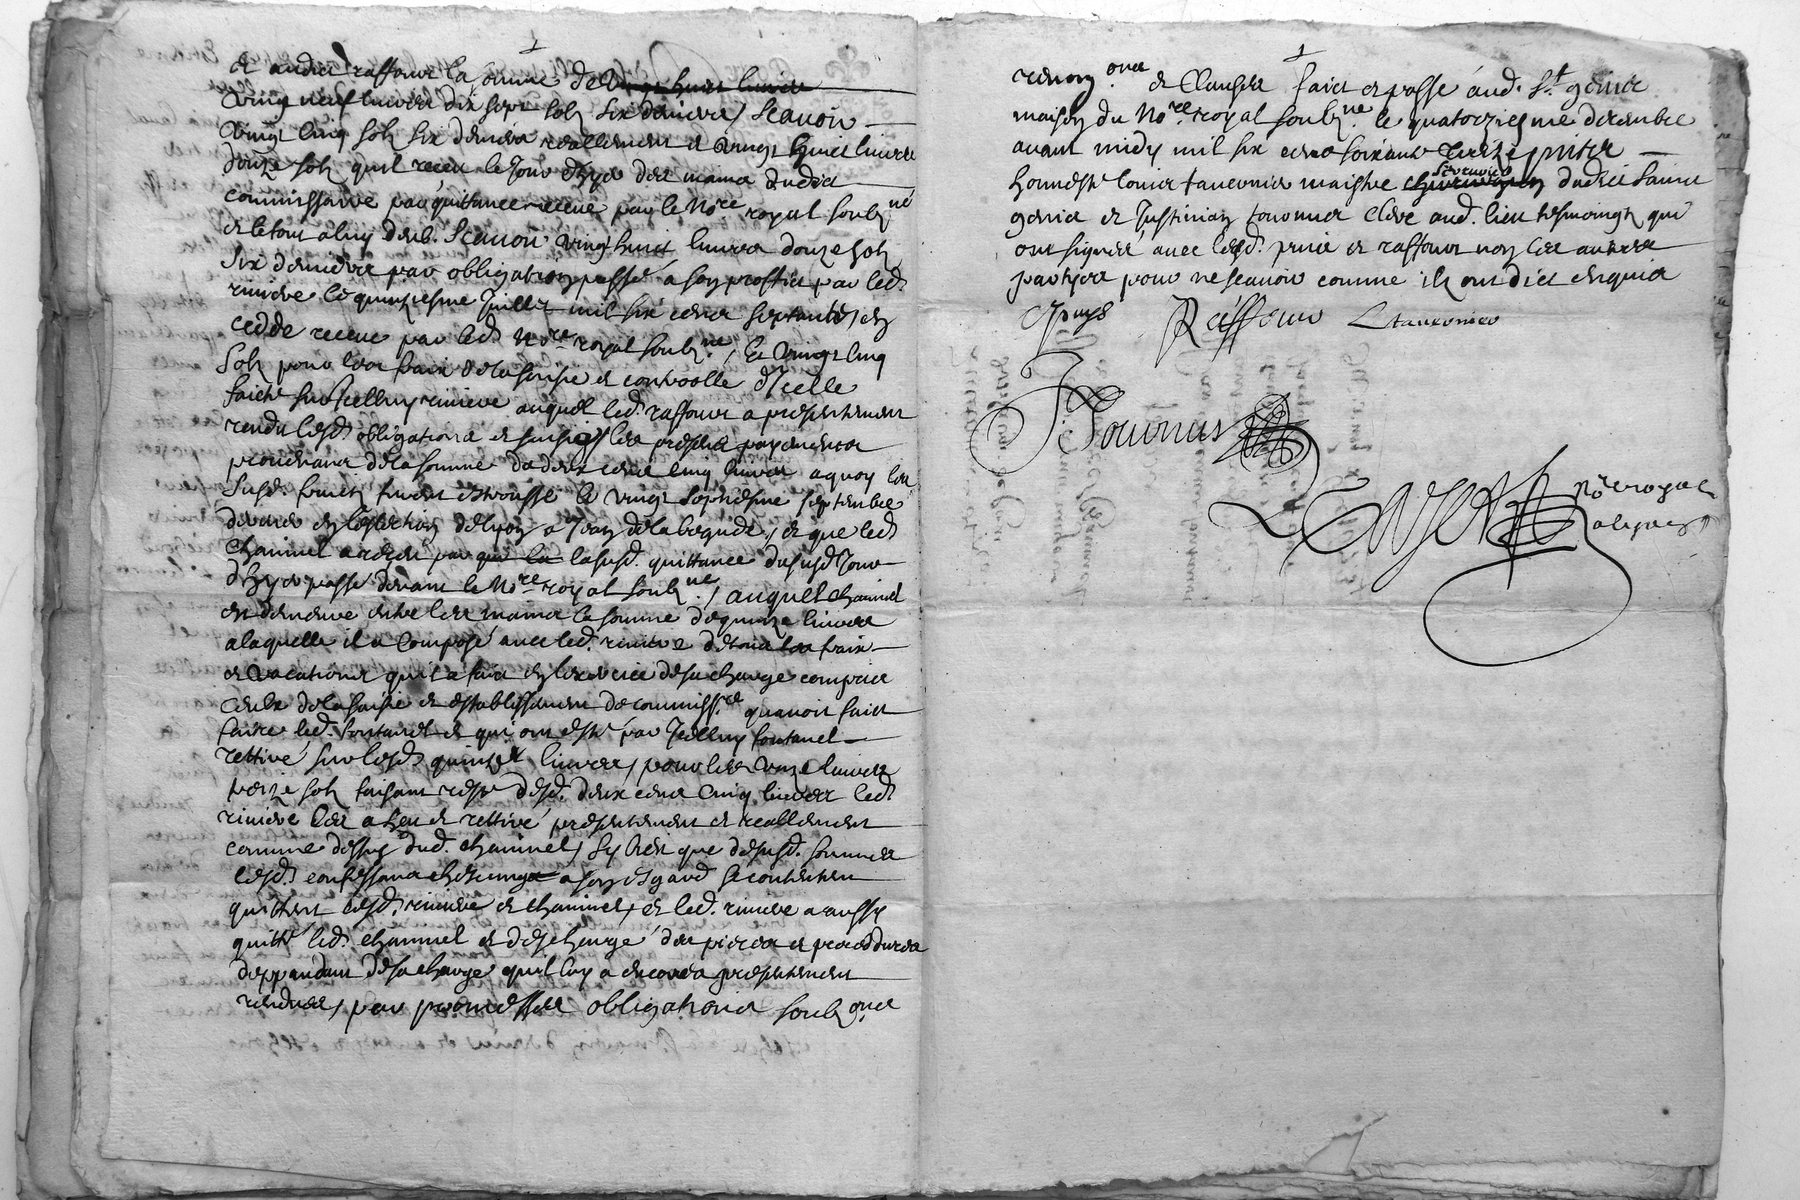 et audict raffour la somme de vingt huict livres
vingt neuf livres dix sept solz six deniers / scavoir
vingt cinq solz six deniers reallement et vingt huict livres
douze solz quil receu le jour dhyer des mains dudict
commissaire par quittance receue par le No.re royal soubz.né
et le tout a luy deub. scavoir vingt huict livres douze solz
six deniers par obligation passé a son proffict par led.
riviere le quinziesme juillet mil six cens septante / en
cedde receue par led. No.re royal soubz.né, et vingt cinq
solz pour les fraix de la saisie et controolle dicelle
faicte sur icelluy riviere auquel led. raffour a presentement
rendu lesd. obligations et saisie / les presens payemens
provenans de la somme de deux cens cinq livres a quoy les
susd. fruictz furent estrousse le vingt septiesme septembre
dernier en leslection de lyon a Jean de labegude, et que led.
chaninel a receu par la susd. quittance du susd. jour
dhyer passé devant le No.re royal soubz.né, auquel chaninel
est demeuré entre les mains la somme de quinze livres
a laquelle il a composé avec led. riviere de tous les fraix
et vacations quil a faict en lexercice de sa charge compris
ceulx de la saisie et establissement de commiss.re quavoit faict
faire led. fontanel et qui ont esté par icelluy fontanel
rettiré sur lesd. quinze livres, pour les unze livres
treize solz faisant reste desd. deux cens cinq livres led.
riviere les a heu et rettiré presentement et reallement
comme dessus dud. chaninel, sy bien que desusd. sommes
lesd. confessans chescung a son esgard se contentent
quittent lesd. riviere et chaninel, et led. riviere a aussy
quitté led. chaninel et deschargé des pieces et proceddures
deppendant de sa charge quil luy a encores presentement
rendues, par promesses obligations soubz.ons
renon.ons et clauses faict et passé aud. St. genis
maison du No.re royal soubz.né le quatorziesme decembre
avant midy mil six cens soixante treize presens
honneste Louis tavernier maistre chirurgien dudict sainct
genis et Justinian tournus clerc aud. lieu tesmoings qui
ont signés avec lesd. puis et raffour non les autres
partyes pour ne scavoir comme ilz ont dict enquis
Puys Raffour L tavernier
J Tournus
No.re royal